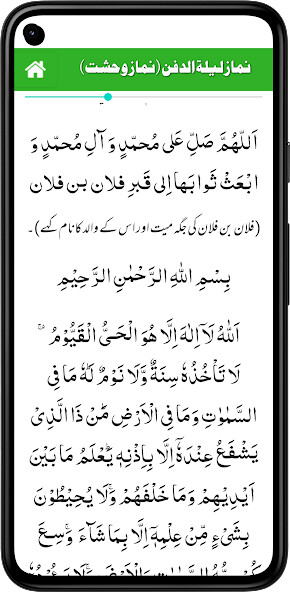 نماز لیلۃ الدفن (نماز وحشت)
اَللّٰهُمَّ صَلِّ عَلٰی مُحَمَّدٍ وَ آلِ مُحَمَّدٍ وَ
ابْعَثْ ثَوَابَهَا اِلٰی قَبرِ فلان بن فلان
(فلان بن فلان کی جگہ میت اور اس کے والد کا نام کہے)۔
بِسْمِ اللهِ الرَّحْمٰنِ الرَّحِیْمِ
اَللهُ لَاۤ اِلٰهَ اِلَّا هُوَ الْحَیُّ الْقَیُّوْمُ ۚ
لَا تَاْخُذُهٗ سِنَةٌ وَّلَا نَوْمٌ لَهٗ مَا فِی
السَّمٰوٰتِ وَمَا فِی الْاَرْضِ مَنْ ذَا الَّذِیْ
یَشْفَعُ عِنْدَهٗۤ اِلَّا بِاِذْنِهٖ یَعْلَمُ مَا بَیْنَ
اَیْدِیْهِمْ وَمَا خَلْفَهُمْ وَلَا یُحِیْطُوْنَ
بِشَیْءٍ مِّنْ عِلْمِهٖۤ اِلَّا بِمَا شَآءَ وَسِعَ